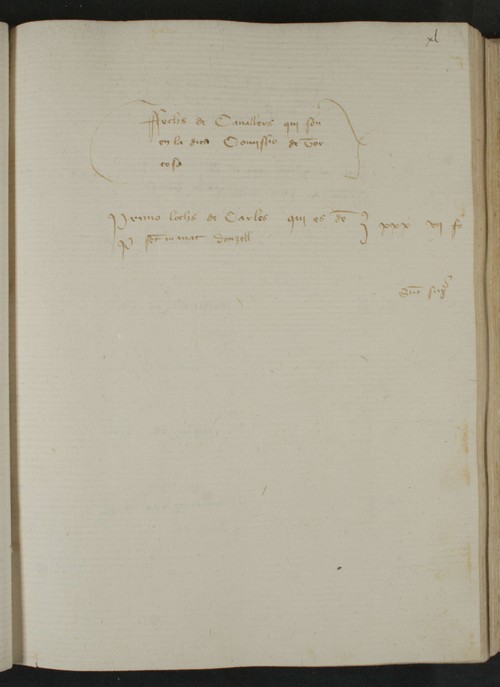 xl
Lochs de Cavallers qui son
en la dita Comissio de Tor
tosa
Primo lochs de Carles qui es de xxx vi f
P donzell